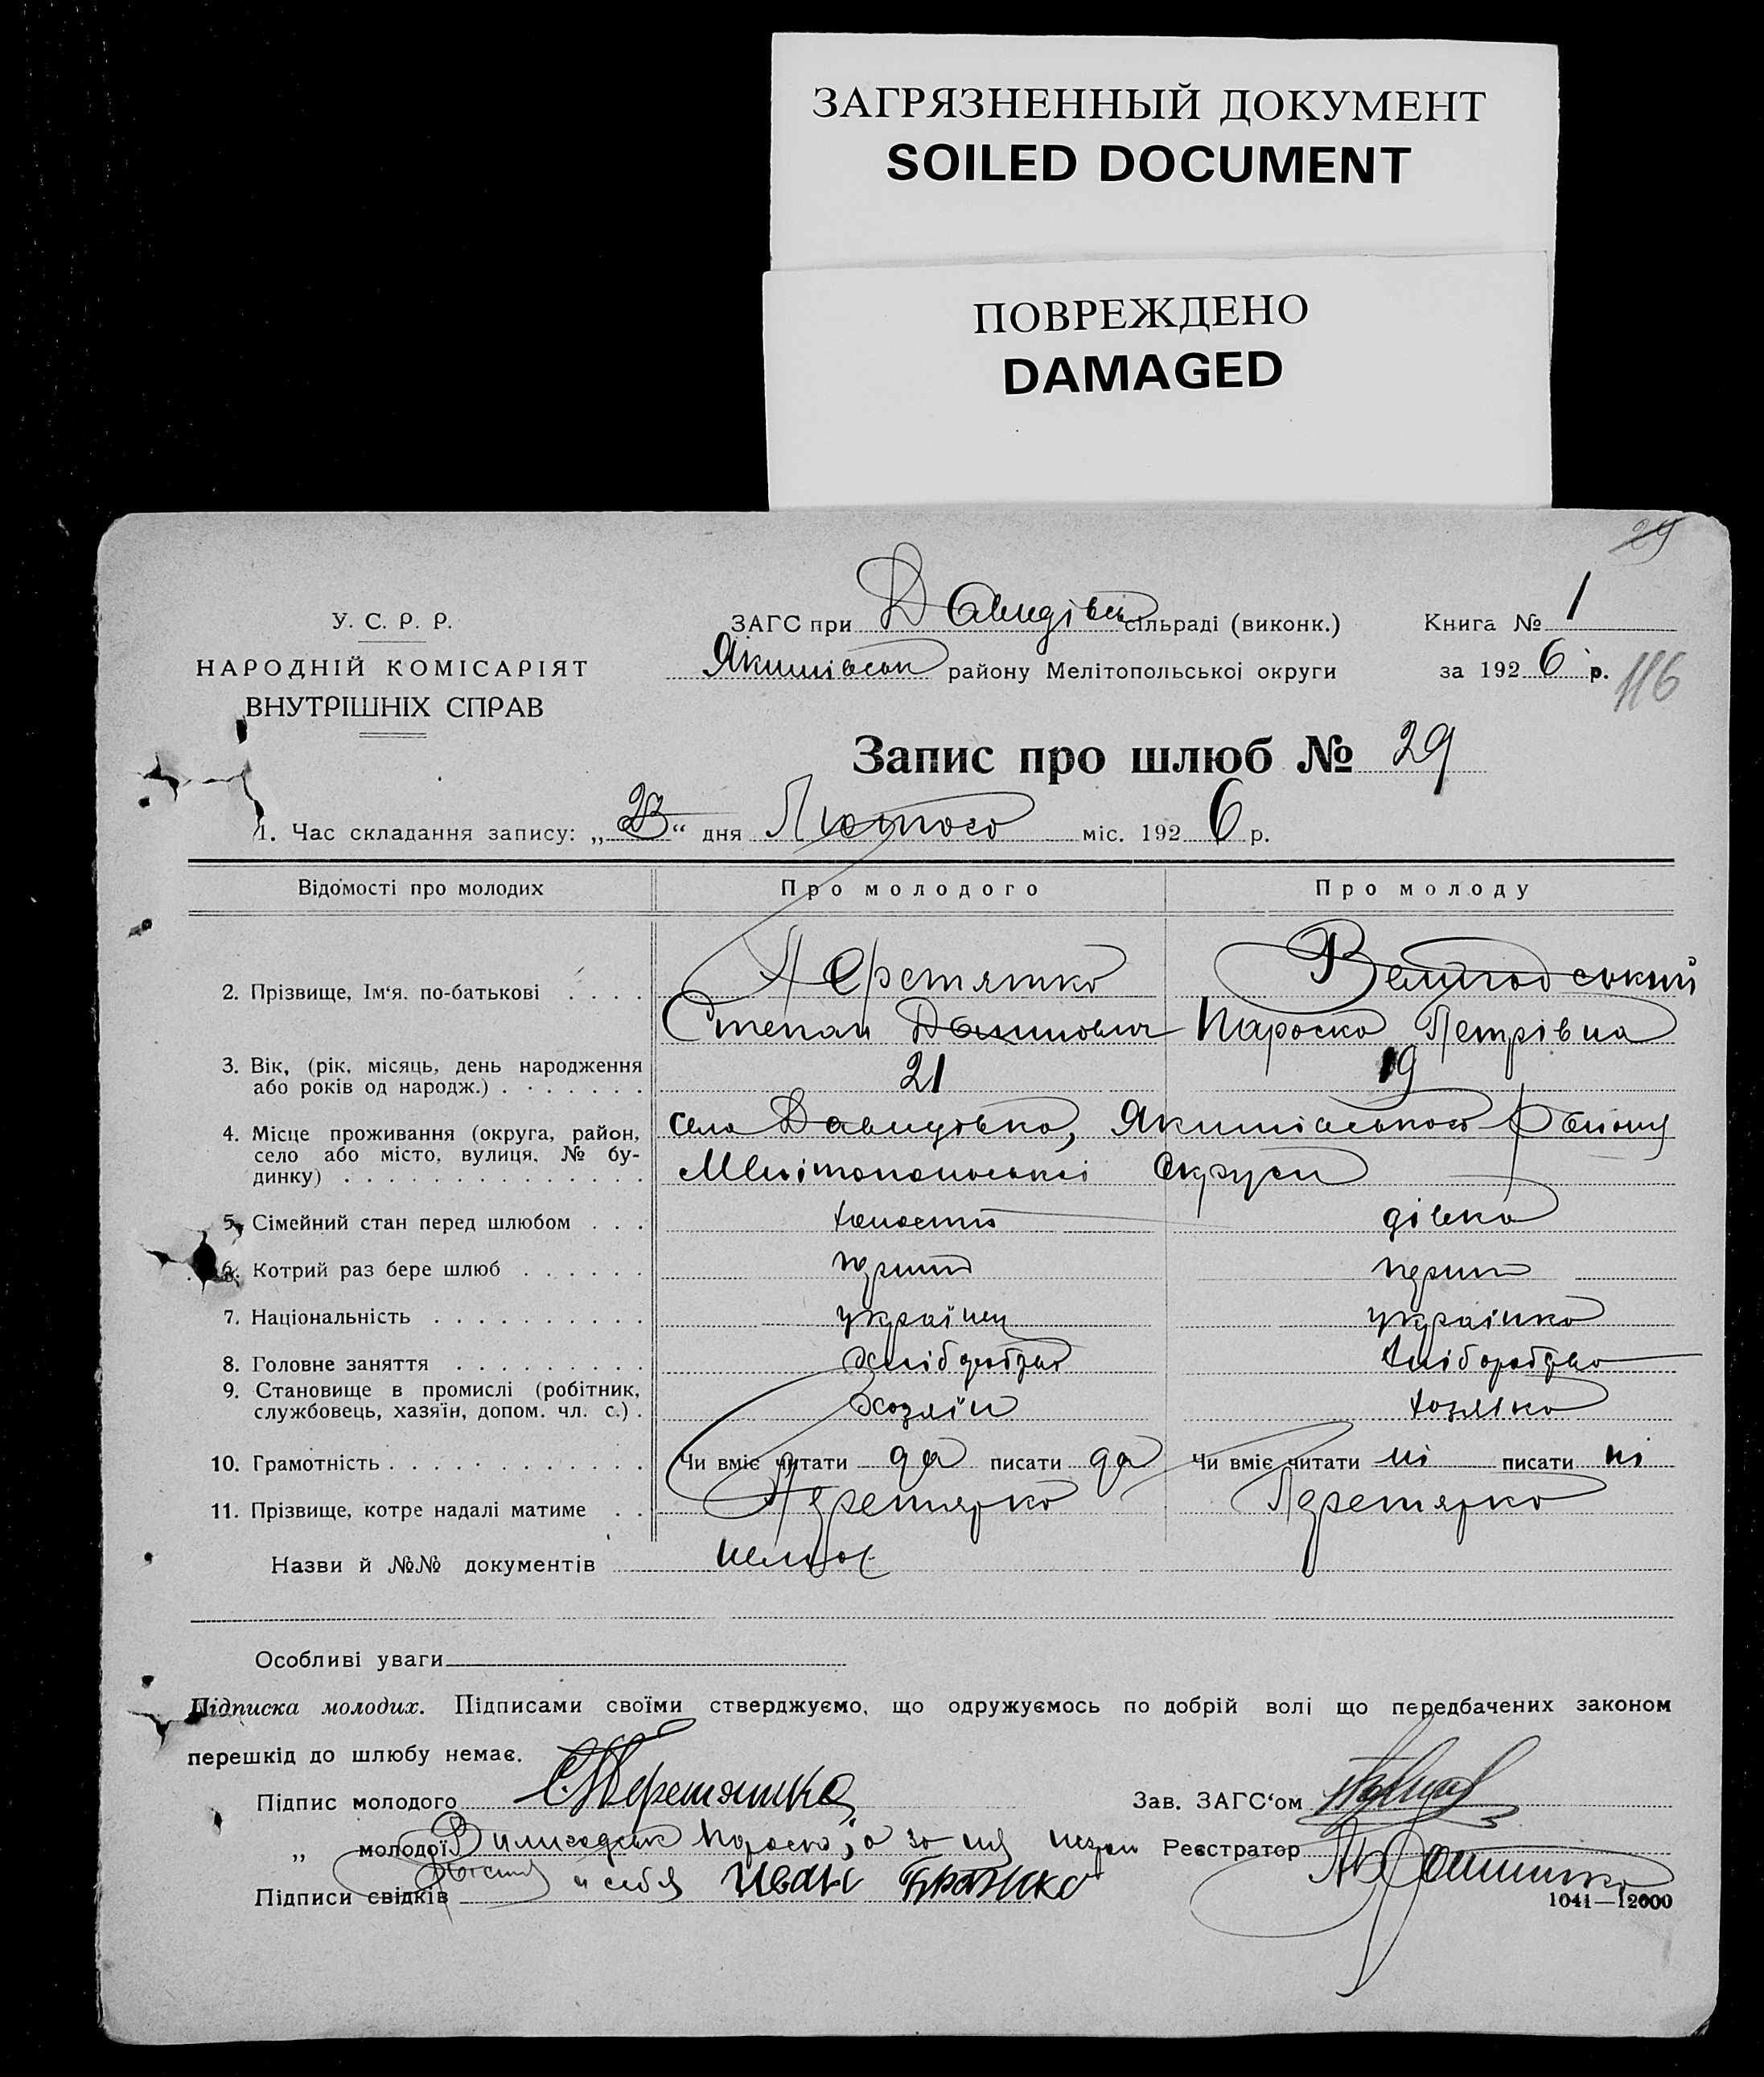 ЗАГРЯЗНЕННЫЙ ДОКУМЕНТ
SOILED DOCUMENT
ПОВРЕЖДЕНО
DAMAGED
29
У. С. Р. Р.
НАРОДНІЙ КОМІСАРІЯТ
ВНУТРІШНІХ СПРАВ
ЗАГС при Давидівськ сільраді (виконк.)
Якимівськ району Мелітопольської округи
Книга № 1
за 1926 р.
116
Запис про шлюб № 29
1. Час складання запису: „23“ дня Лютого міс. 1926 р.
Відомості про молодих Про молодого Про молоду
2. Прізвище, Ім‘я. по-батькові . . . . Перетятко
Степан Данилович Параска Петрівна
3. Вік, (рік, місяць, день народження або років од народж.) . . . . . . . 21 19
4. Місце проживання (округа, район, село або місто, вулиця, № будинку) . . . . . . . . . . . . . . села Давидовка, Якимівського району
Мелітопольської Округи
5. Сімейний стан перед шлюбом . . . дівка
6. Котрий раз бере шлюб . . . . . .
7. Національність . . . . . . . . . . українец українка
8. Головне заняття . . . . . . . . . хліборобство хліборобство
9. Становище в промислі (робітник, службовець, хазяїн, допом. чл. с.) . хозяїн хозяїка
10. Грамотність . . . . . . . . . . . . Чи вміє читати да писати да Чи вміє читати ні писати ні
11. Прізвище, котре надалі матиме . . Перетятко Перетятко
Назви й №№ документів немає
Особливі уваги
Підписка молодих. Підписами своїми стверджуємо, що одружуємось по добрій волі що передбачених законом
перешкід до шлюбу немає.
Підпис молодого С Перетятка Зав. ЗАГС‘ом
„ молодої Реєстратор
Підписи свідків и себя Иван
1041—12000